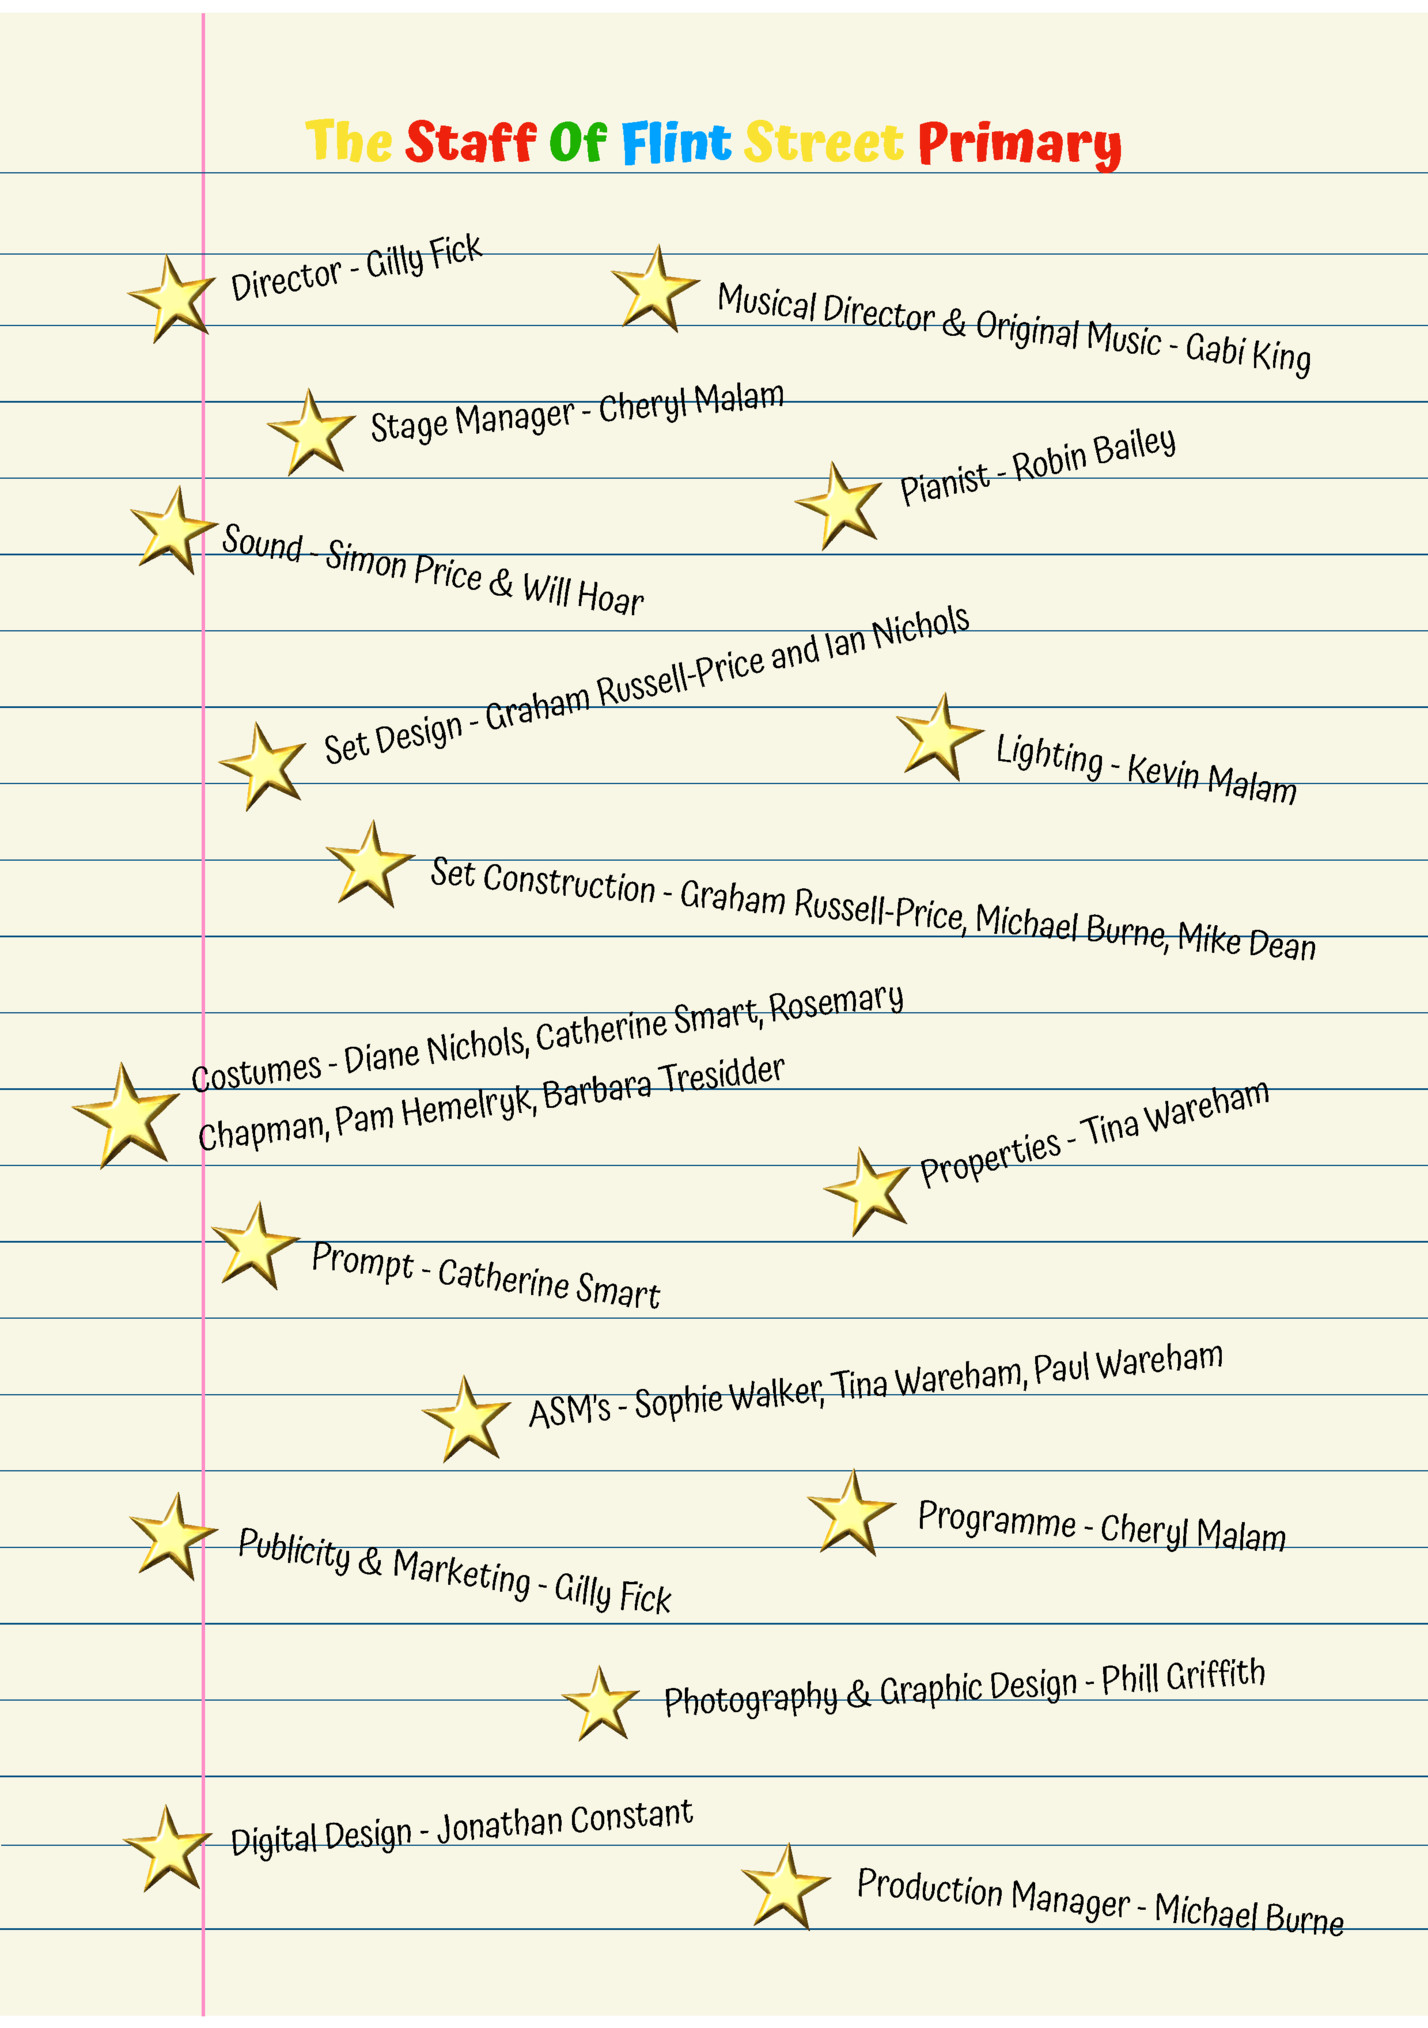 The Staff Of Flint Street Primary
Director - Gilly Fick
Musical Director & Original Music - Gabi King
Stage Manager - Cheryl Malam
Pianist - Robin Bailey
Sound - Simon Price & Will Hoar
Set Design - Graham Russell-Price and Ian Nichols
Lighting - Kevin Malam
Set Construction - Graham Russell-Price, Michael Burne, Mike Dean
Costumes - Diane Nichols, Catherine Smart, Rosemary
Chapman, Pam Hemelryk, Barbara Tresidder
Properties - Tina Wareham
Prompt - Catherine Smart
ASM's - Sophie Walker, Tina Wareham, Paul Wareham
Programme - Cheryl Malam
Publicity & Marketing - Gilly Fick
Photography & Graphic Design - Phill Griffith
Digital Design - Jonathan Constant
Production Manager - Michael Burne